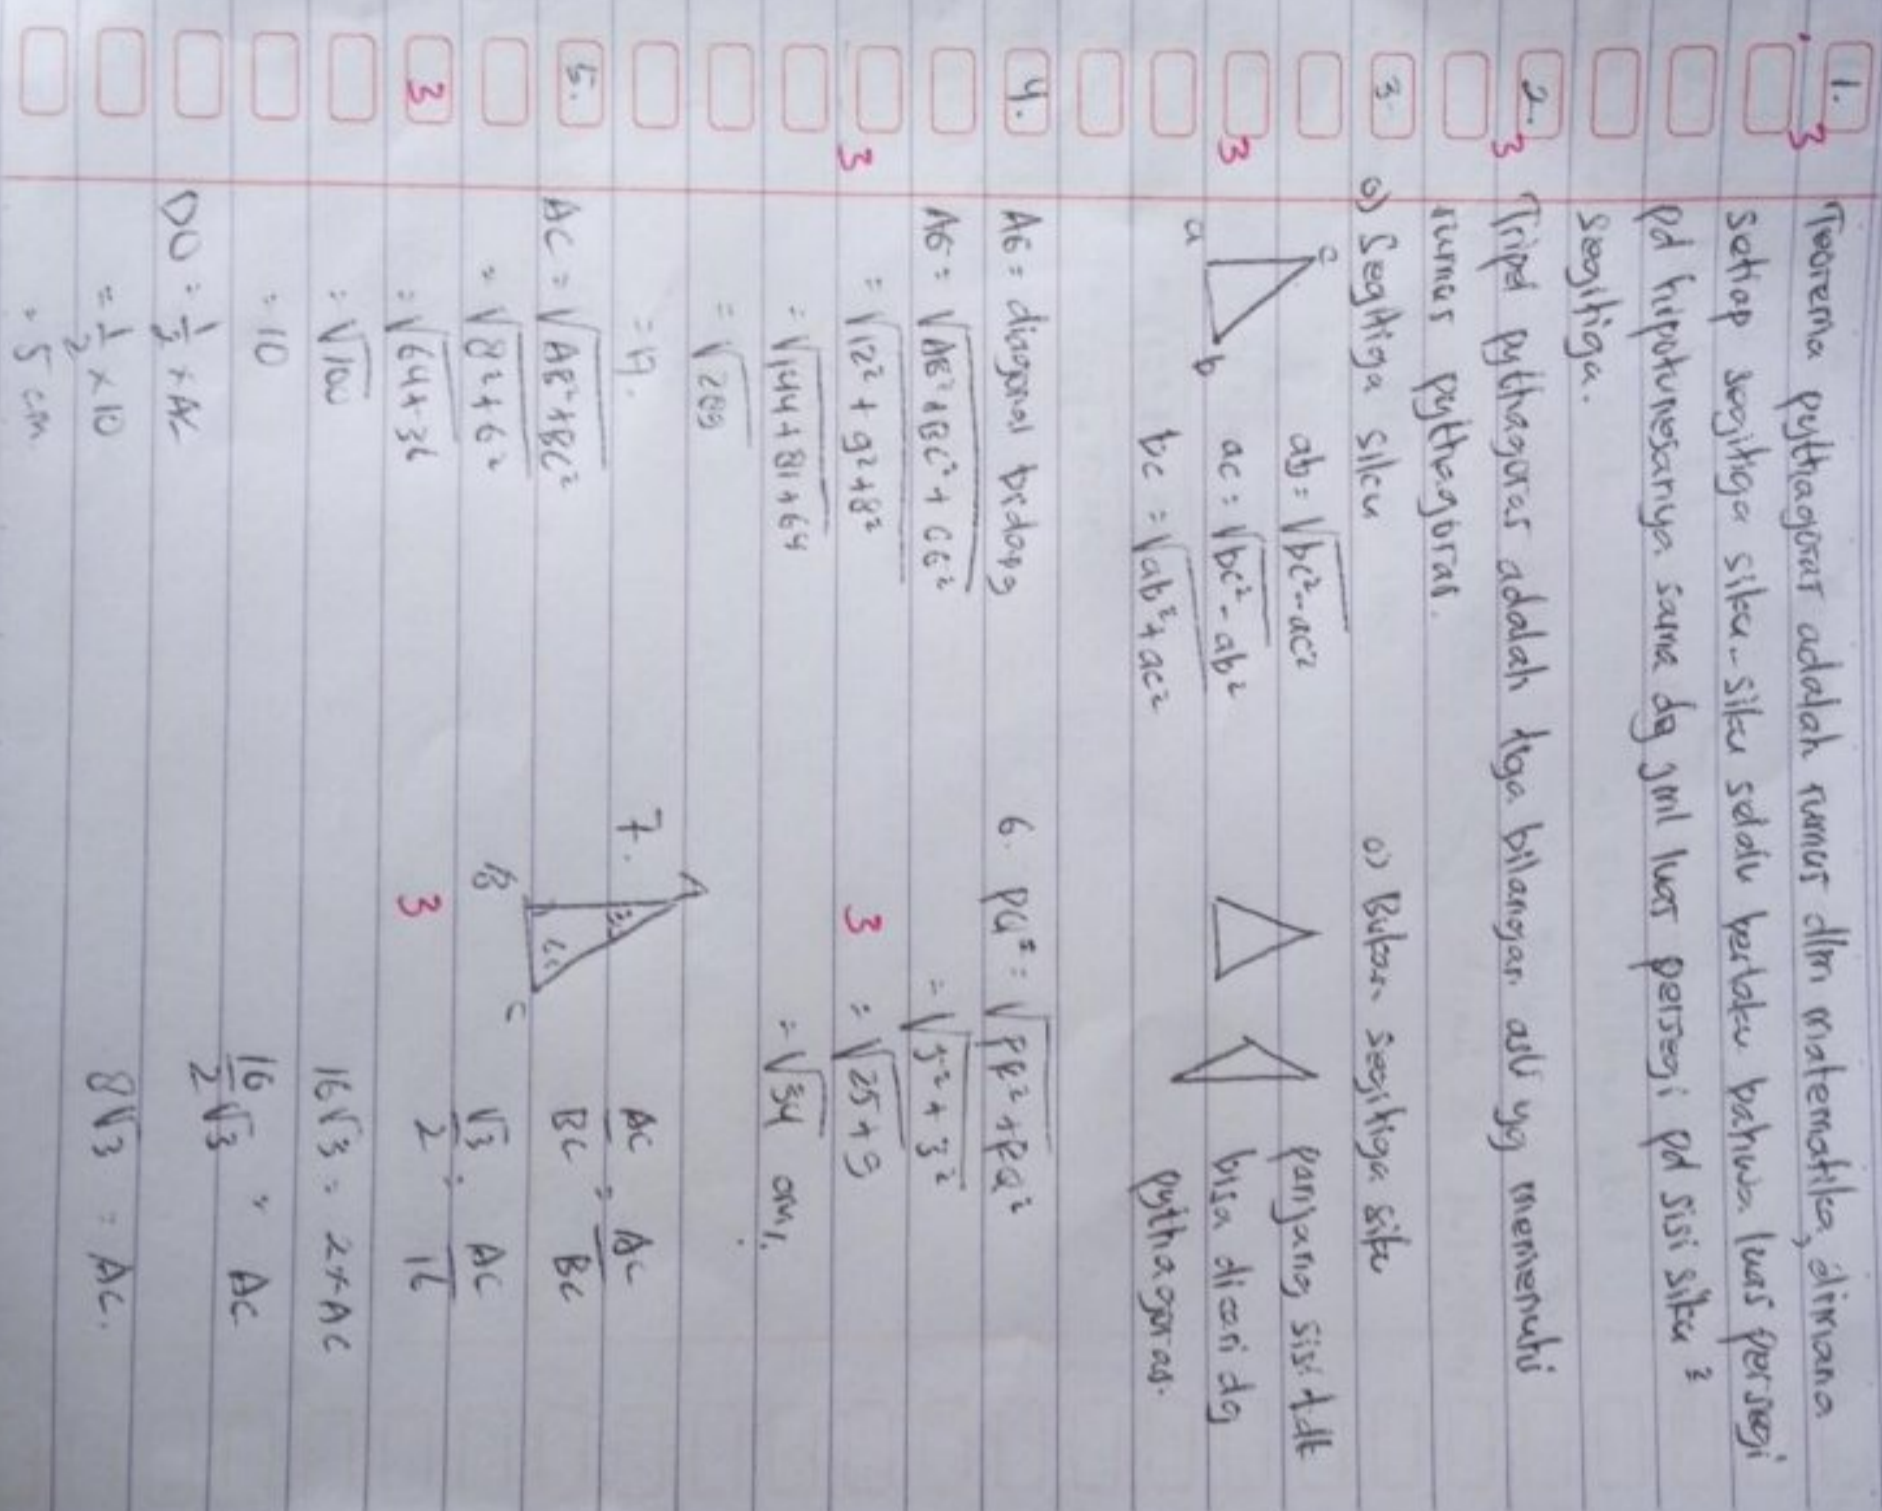 1. Teorema pythagoras adalah rumus dlm matematika, dimana
3
setiap segitiga siku-siku selalu berlaku bahwa luas persegi
pd hipotunesanya sama dg jml luas persegi pd sisi siku²
segitiga.
2. Tripel pythagoras adalah tiga bilangan asli yg memenuhi
3
rumus pythagoras.
3. a) Segitiga siku
c
a b
ab = √bc² - ac²
ac = √bc² - ab²
3
bc = √ab² + ac²
o) Bukan segitiga siku
panjang sisi tdk
bisa dicari dg
pythagoras.
4. AG = diagonal bidang
AG = √AB² + BC² + CG²
= √12² + 9² + 8²
3
= √144 + 81 + 64
= √289
= 17.
5. AC = √AB² + BC²
= √8² + 6²
= √64 + 36
3
= √100
= 10
DO = ½ × AC
= ½ × 10
= 5 cm
6. PQ² = √PR² + RQ²
= √5² + 3²
= √25 + 9
3
= √34 cm
7. A
B C
3
AC/BC = AC/BC
√3/2 = AC/16
16√3 = 2 × AC
16/2 √3 = AC
8√3 = AC.